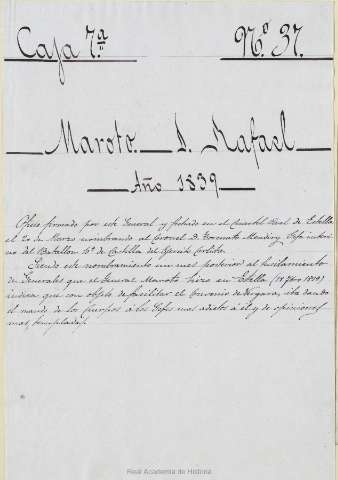 Caja 7.ª Nº 37.
Maroto. D. Rafael
Año 1839
Oficio firmado por este General y fechado en el Cuartel Real de Estella
el 20 de Marzo nombrando al Coronel D. Torcuato Mendiry Gefe interino
del Batallon 6º de Castilla del Ejército Carlista.
Siendo este nombramiento un mes posterior al fusilamiento
de Generales que el General Maroto hizo en Estella
indica que con objeto de facilitar el Convenio de Vergara, iba dando
el mando de los cuerpos a los Gefes mas adictos á él y de opiniones
mas templadas.
Real Academia de Historia